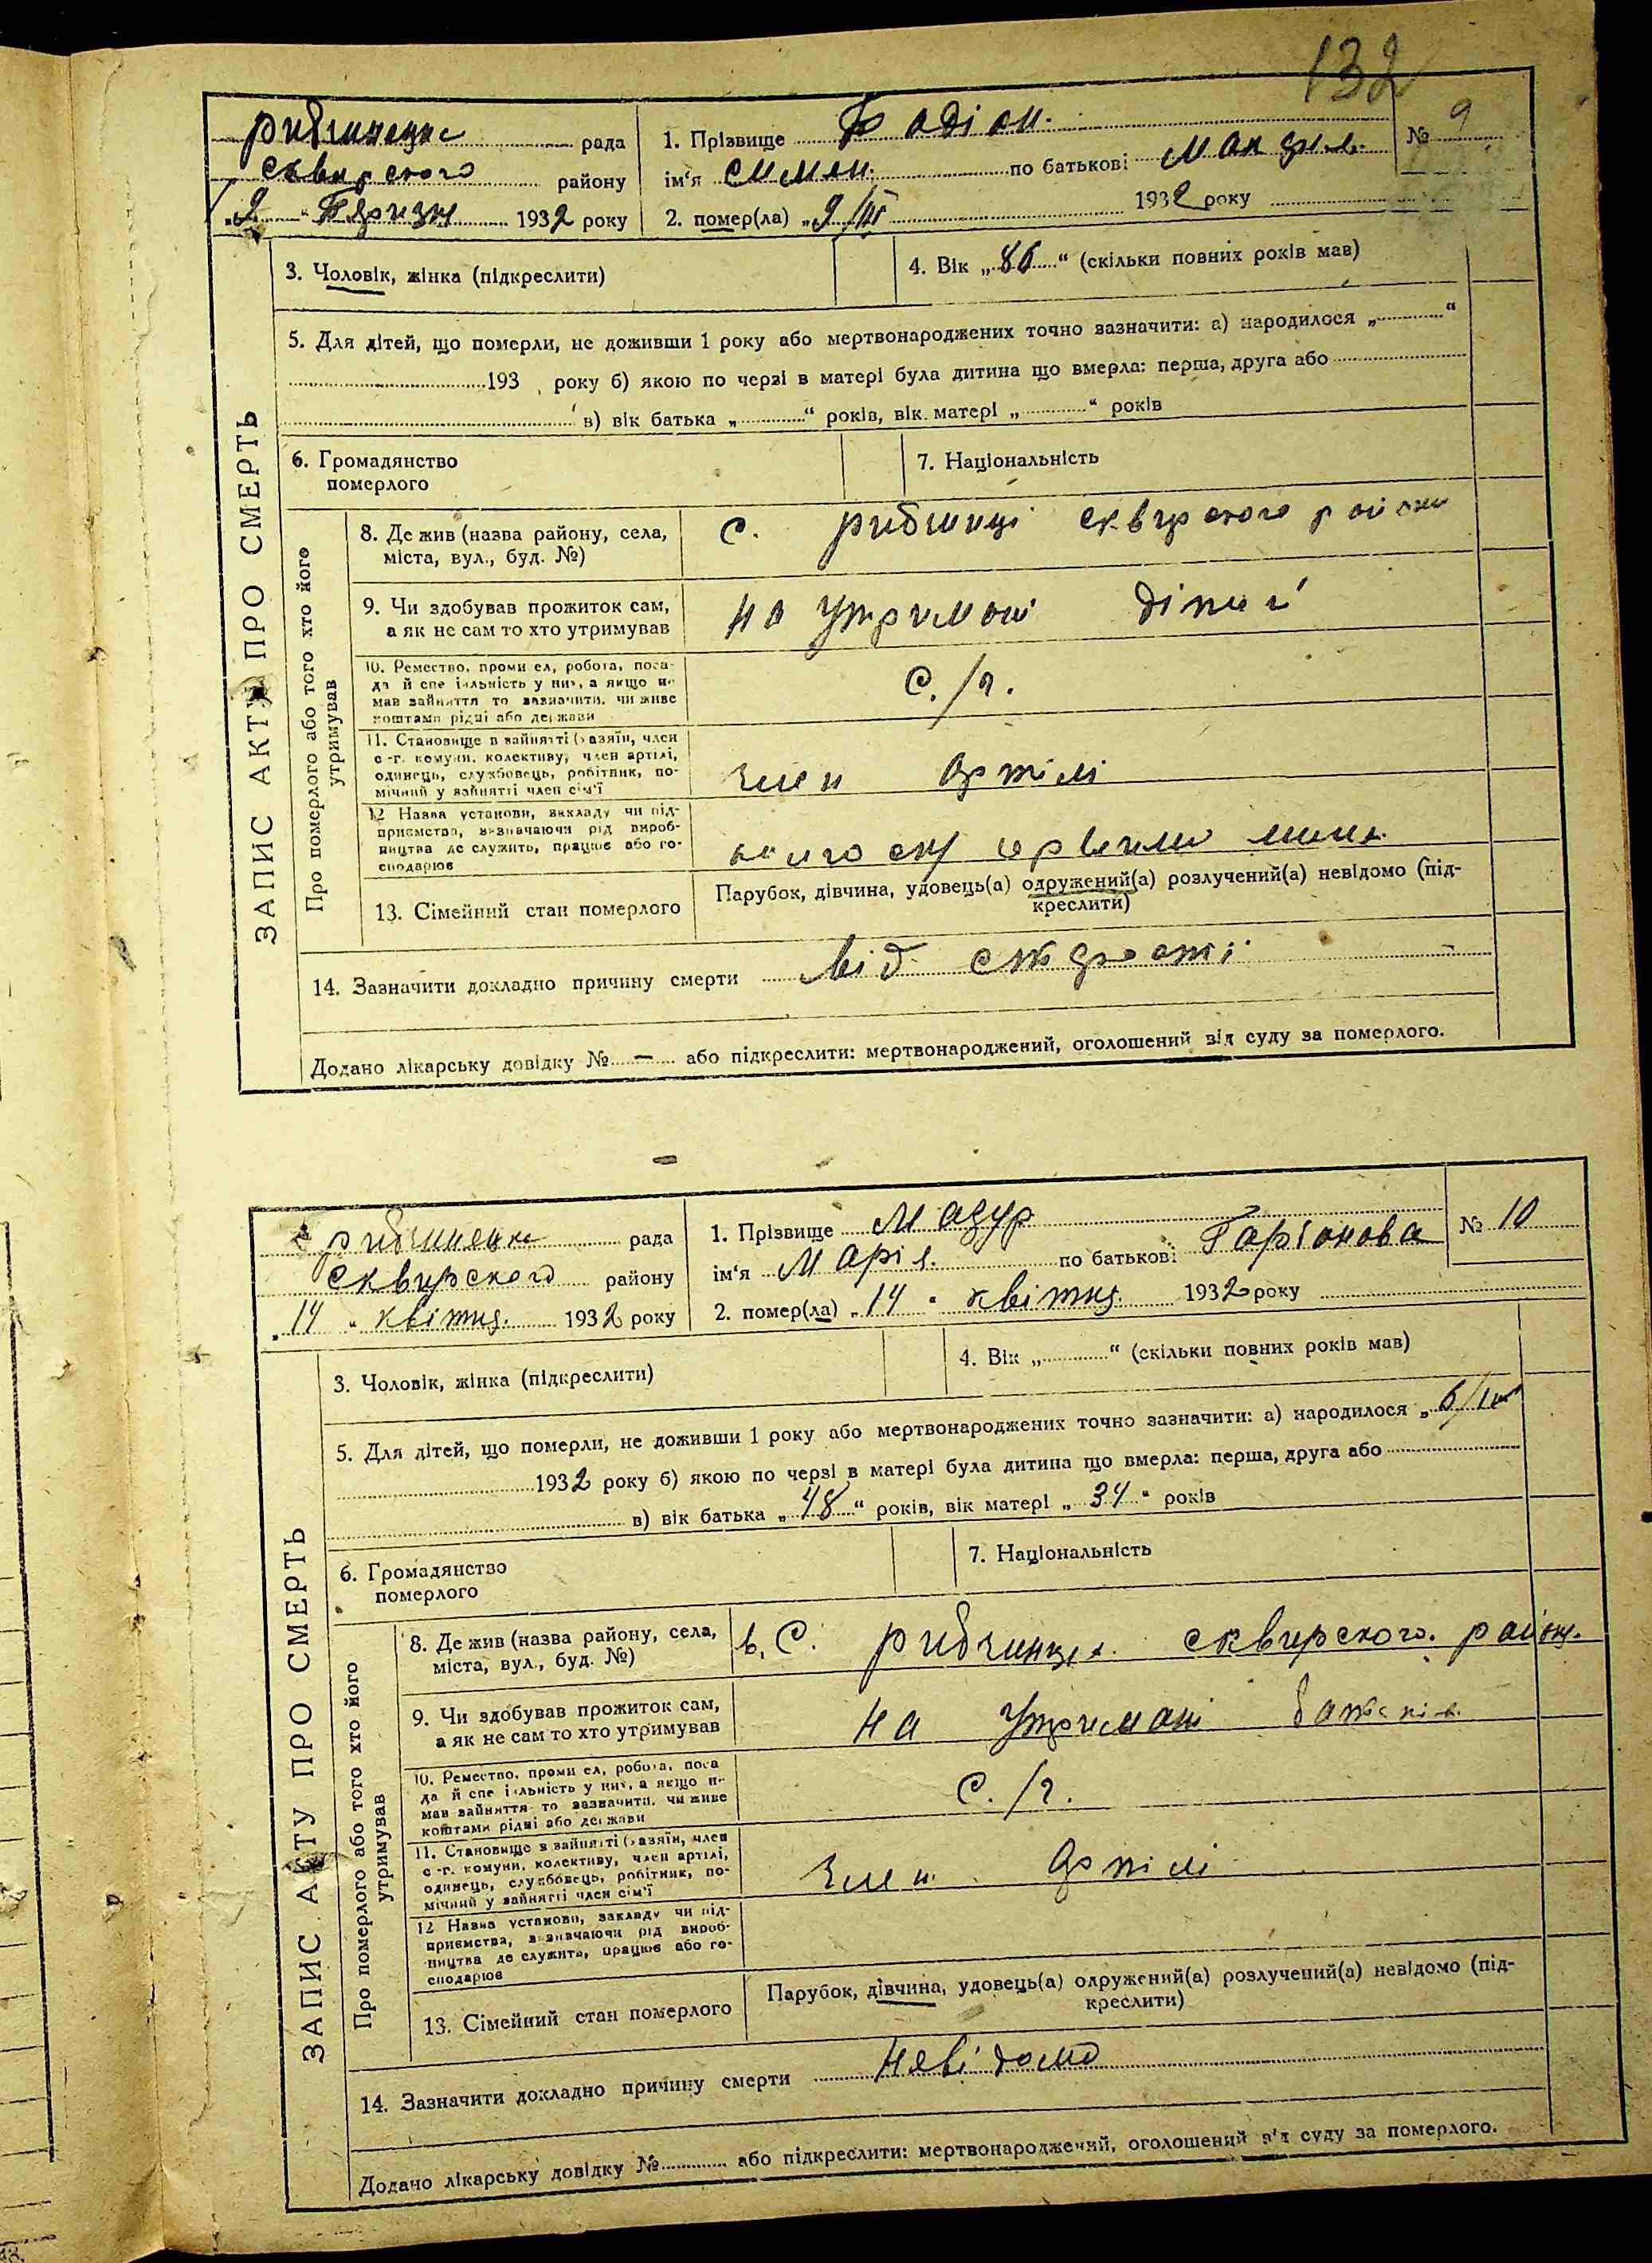 132
рада
Сквирского району
1. Прізвище
№ 9
ім'я по батькові
"9" 1932 року
2. помер(ла) „9/III 1932 року
3. Чоловік, жінка (підкреслити)
4. Вік „86“ (скільки повних років мав)
5. Для дітей, що померли, не доживши 1 року або мертвонароджених точно зазначити: а) народилося „ “
193 року б) якою по черзі в матері була дитина що вмерла: перша, друга або
в) вік батька „ “ років, вік матері „ “ років
6. Громадянство
померлого
7. Національність
ЗАПИС АКТУ ПРО СМЕРТЬ
Про померлого або того хто його
утримував
8. Де жив (назва району, села,
міста, вул., буд. №)
с. Рибчинці сквирского району
9. Чи здобував прожиток сам,
а як не сам то хто утримував
на утримані дітей
10. Ремество, промисел, робота, поса-
да й спеціальність у них, а якщо не
мав зайняття то зазначити, чи живе
коштами рідні або держави
С./г.
11. Становище в зайнятті (хазяїн, член
с.-г. комуни, колективу, член артілі,
одинець, службовець, робітник, по-
мічний у зайнятті член сім'ї
член артілі
12 Назва установи, закладу чи під-
приємства, зазначаючи рід вироб-
ництва де служить, працює або го-
сподарює
13. Сімейний стан померлого
Парубок, дівчина, удовець(а) одружений(а) розлучений(а) невідомо (під-
креслити)
14. Зазначити докладно причину смерти від старості
Додано лікарську довідку № — або підкреслити: мертвонароджений, оголошений від суду за померлого.
рада
Сквирского району
1. Прізвище Мазур
№ 10
ім'я Марія по батькові Гаріонова
„14“ квітня 1932 року
2. помер(ла) „14“ квітня 1932 року
3. Чоловік, жінка (підкреслити)
4. Вік „ “ (скільки повних років мав)
5. Для дітей, що померли, не доживши 1 року або мертвонароджених точно зазначити: а) народилося „
1932 року б) якою по черзі в матері була дитина що вмерла: перша, друга або
в) вік батька „48“ років, вік матері „34“ років
6. Громадянство
померлого
7. Національність
ЗАПИС АКТУ ПРО СМЕРТЬ
Про померлого або того хто його
утримував
8. Де жив (назва району, села,
міста, вул., буд. №)
в. С. Рибчинцях сквирского району
9. Чи здобував прожиток сам,
а як не сам то хто утримував
на утримані батьків
10. Ремество, промисел, робота, поса
да й спеціальність у них, а якщо не
мав зайняття то зазначити, чи живе
коштами рідні або держави
С./г.
11. Становище в зайнятті (хазяїн, член
с.-г. комуни, колективу, член артілі,
одинець, службовець, робітник, по-
мічний у зайнятті член сім'ї
член артілі
12 Назва установи, закладу чи під-
приємства, зазначаючи рід вироб-
ництва де служить, працює або го-
сподарює
13. Сімейний стан померлого
Парубок, дівчина, удовець(а) одружений(а) розлучений(а) невідомо (під-
креслити)
14. Зазначити докладно причину смерти невідомо
Додано лікарську довідку № або підкреслити: мертвонароджений, оголошений від суду за померлого.